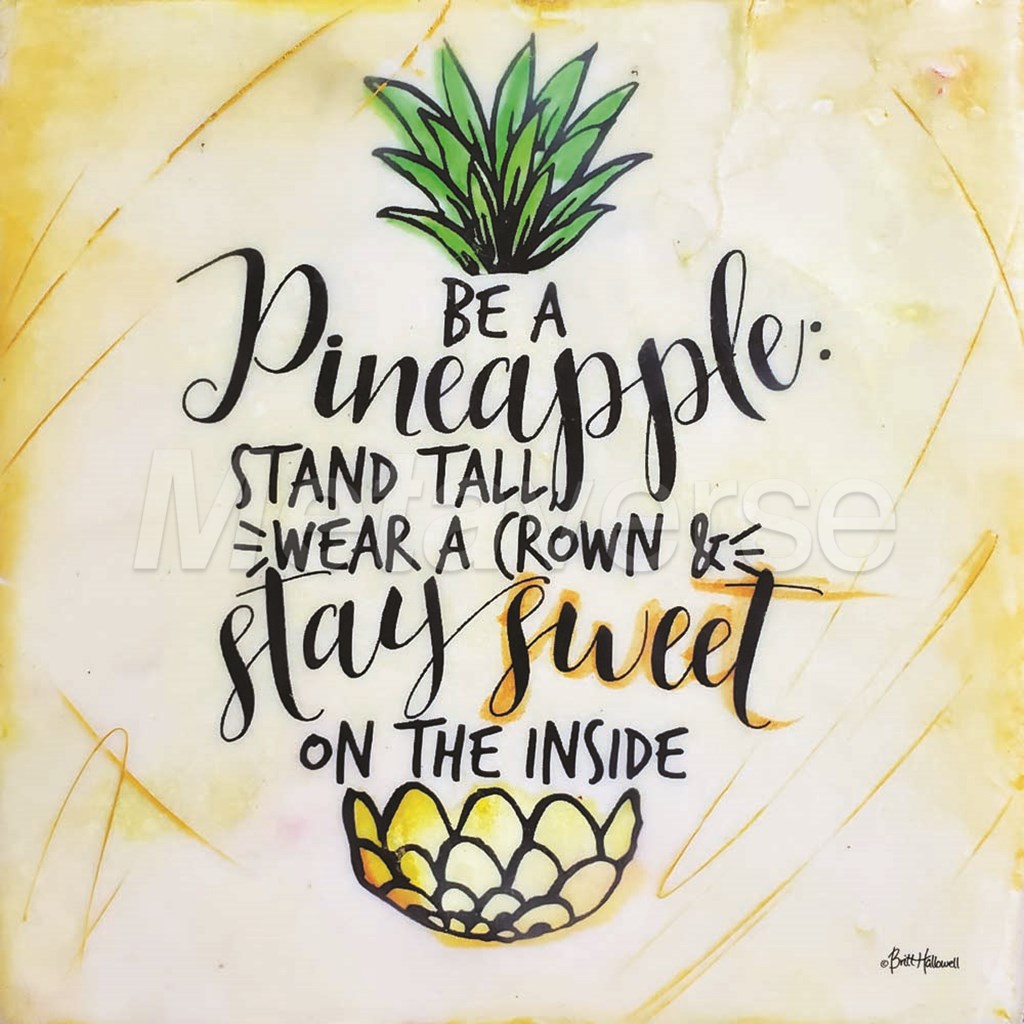 BE A
Pineapple:
STAND TALL,
WEAR A CROWN &
stay sweet
ON THE INSIDE
Metaverse
©Britt Hallowell